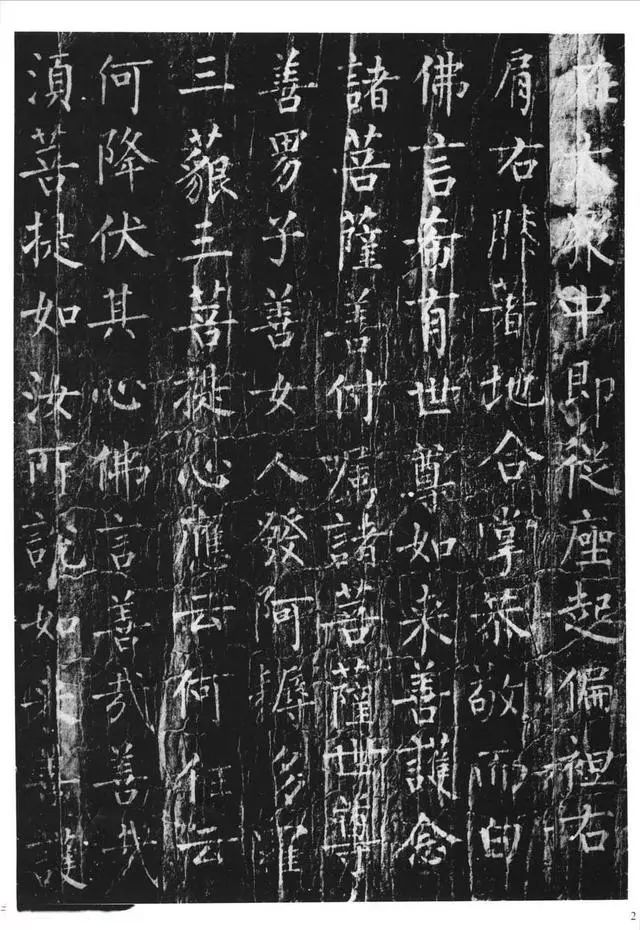 在大衆中即從座起偏袒右
肩右膝著地合掌恭敬而白
佛言希有世尊如来善護念
諸菩薩善付属諸菩薩世尊
善男子善女人發阿耨多羅
三藐三菩提心應云何住云
何降伏其心佛言善哉善哉
湏菩提如汝所説如来善護
2